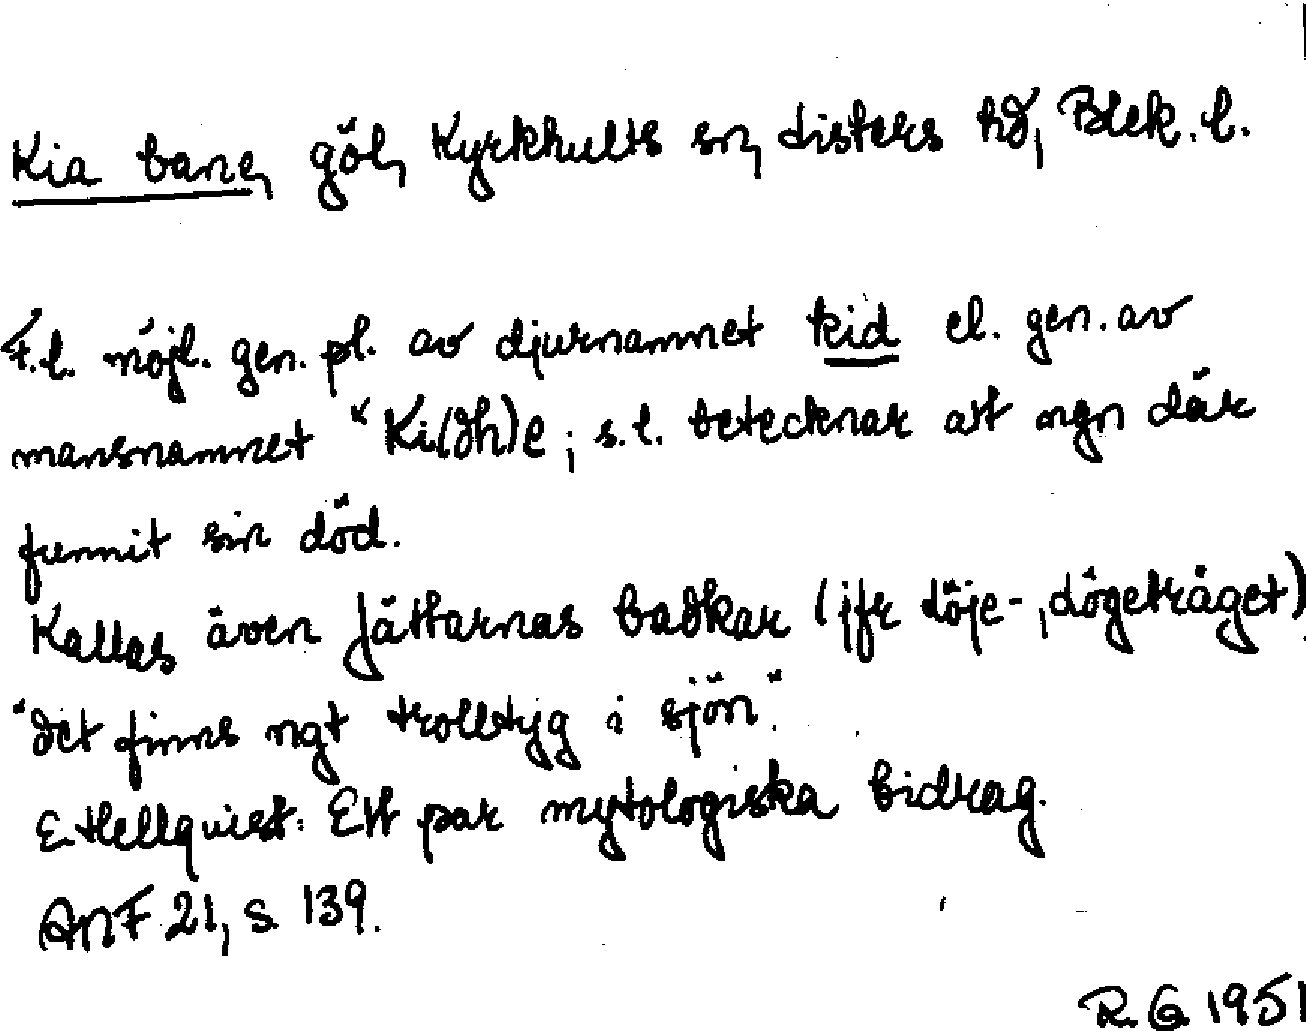 Kia bane, göl, Kyrkhults sn, Listers hd, Blek. l.
F.l. möjl. gen. pl. av djurnamnet kid el. gen. av
mansnamnet *Ki(dh)e; s.l. betecknar att ngn där
funnit sin död.
Kallas även Jättarnas badkar (jfr döje-, dögetråget)
"Det finns ngt trolltyg i sjön".
E. Hellquist: Ett par mytologiska bidrag.
ANF 21, s. 139.
R.G. 1951